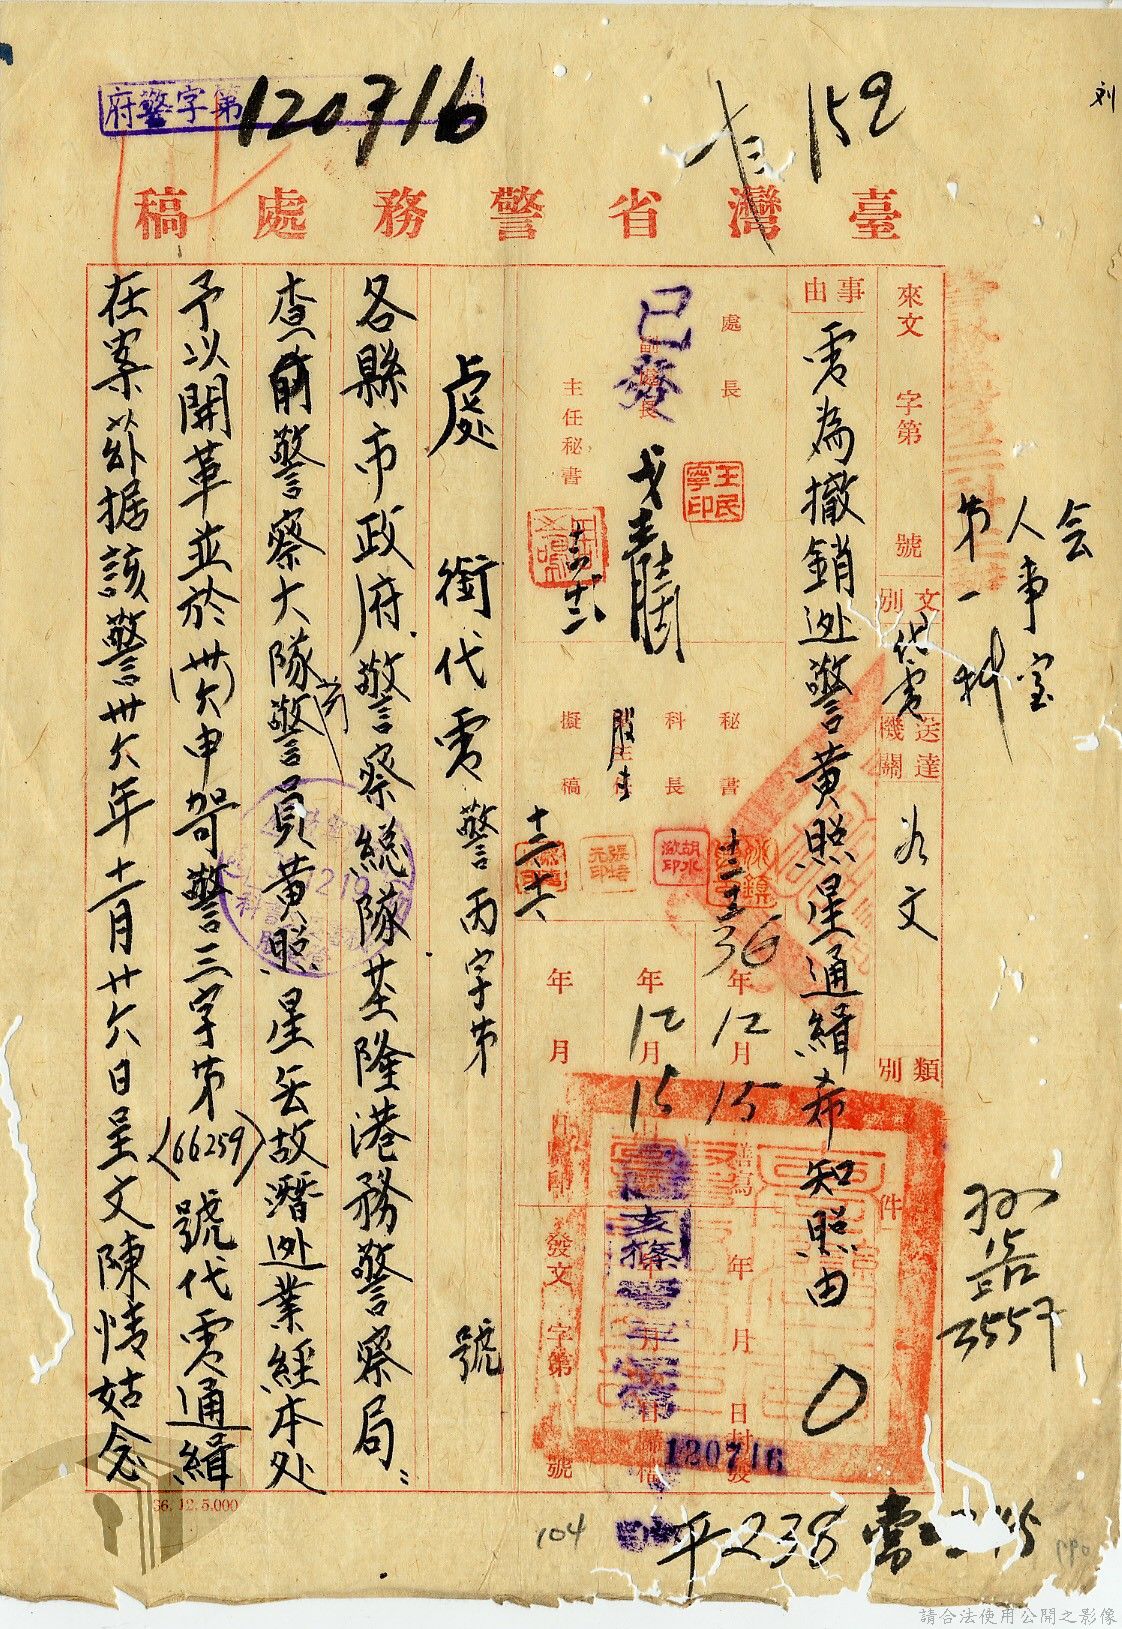 府警字第120716
臺灣省警務處稿
會
人事室
第一科
來文 字第 號
文別 代電
送達機關 如文
類別
件
事由
電為撤銷逃警黃照星通緝希知照由
處長
副處長
已發
主任秘書
王民寧印
秘書
科長
股主任
擬稿
36年12月15
年12月15
年月
年月日封發
發文字第 號
120716
處銜代電 警丙字第 號
各縣市政府.警察總隊.基隆港務警察局:
查前警察大隊警員黃照星無故潛逃業經本处
予以開革並於(卅六)申哿警三字第(66259)號代電通緝
在案茲据該警卅六年十一月廿六日呈文陳情姑念
36.12.5.000
104
平238
3557
請合法使用公開之影像